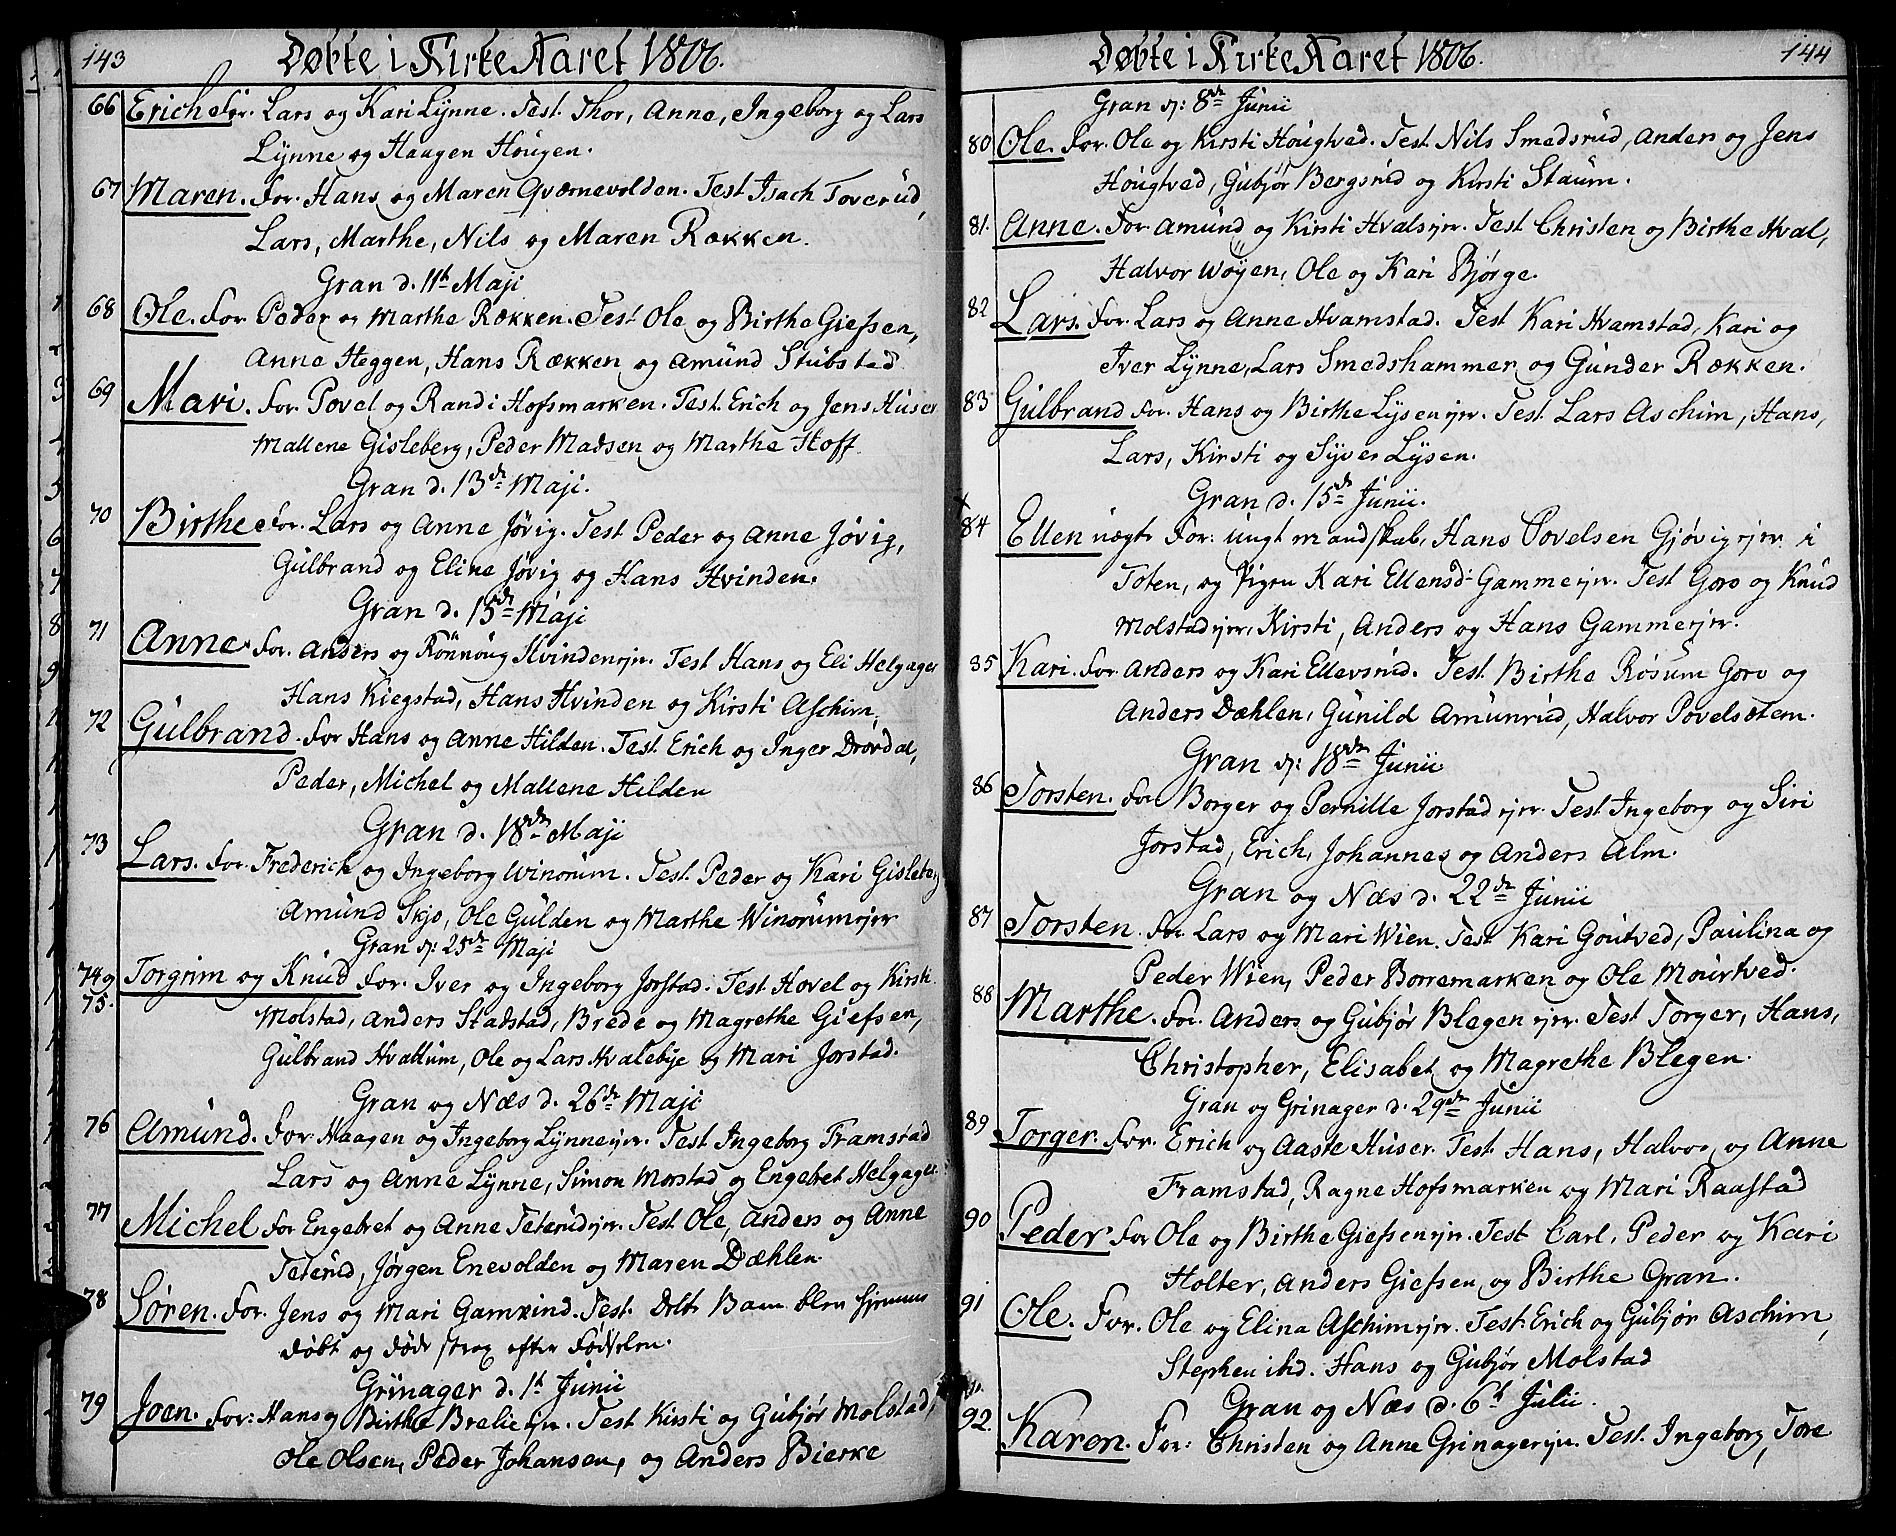 143 Døbte i Kirke Aaret 1806.
66 Erich. For. Lars og Kari Lÿnne. Test. Thor, Anne, Ingeborg og Lars
Lÿnne og Haagen Hougen.
67 Maren. For. Hans og Maren Qværnevolden. Test Isach Toverud,
Lars, Marthe, Nils og Maren Rækken.
Gran d. 11t Maji
68 Ole. For Peder og Marthe Rækken. Test Ole og Birthe Giefsen,
Anne Heggen, Hans Rækken og Amünd Stübstad
69 Mari. For. Povel og Randi Hofsmarken. Test. Erich og Jens Hüser
Mallene Gisleberg, Peder Madsen og Marthe Hoff.
Gran d. 13de Maji.
70 Birthe For. Lars og Anne Jøvig. Test Peder og Anne Jøvig,
Gülbrand og Eline Jøvig og Hans Hvinden.
Gran d. 15de Maji
71 Anne For. Anders og Rönnoüg Hvindenejer. Test Hans og Eli Helgager
Hans Kiegstad, Hans Hvinden og Kirsti Aschim,
72 Gülbrand. For Hans og Anne Hilden. Test Erich og Inger Drövdal,
Peder, Michel og Mallene Hilden
Gran d. 18de Maji
73 Lars. For. Frederich og Ingeborg Winorüm. Test Peder og Kari Gisleberg
Amünd Skjo, Ole Gülden og Marthe Winorümejer
Gran d: 25de Maji
74 og Torgrim og Knüd For. Iver og Ingeborg Jorstad. Test Hovel og Kirsti
75. Molstad, Anders Stadstad, Brede og Magrethe Giefsen,
Gülbrand Hvattüm, Ole og Lars Hvalebÿe og Mari Jorstad.
Gran og Næs d. 26de Maji
76 Amünd. For. Haagen og Ingeborg Lÿnneejer. Test Ingeborg Framstad
Lars og Anne Lÿnne, Simon Morstad og Engebret Helgager
77 Michel For Engebret og Anne Teterüdejer. Test Ole, Anders og Anne
Teterüd, Jørgen Enevolden og Maren Dæhlen.
78 Søren. For. Jens og Mari Gamkind. Test. Dette Barn blev hjemme
døbt og døde strax efter Fødselen.
Grinager d. 1t Junii
79 Joen. For: Hans og Birthe Brelieejer. Test Kirsti og Gübjør Molstad,
Ole Olsen, Peder Johansen, og Anders Bierke
Døbte i Kirke Aaret 1806. 144
Gran d: 8de Junii
80 Ole. For. Ole og Kirsti Hoügtved. Test Nils Smedsrüd, Anders og Jens
Hoügtved, Gübjør Bergsrüd og Kirsti Staüm.
81. Anne. For. Amünd og Kirsti Hvalsejer. Test Christen og Birthe Hval,
Halvor Woÿen, Ole og Kari Bjørge.
82 Lars. For. Lars og Anne Hvamstad. Test Kari Hvamstad, Kari og
Iver Lÿnne, Lars Smedshammer og Günder Rækken.
83 Gülbrand For. Hans og Birthe Lÿsenejer. Test. Lars Aschim, Hans,
Lars, Kirsti og Sÿver Lÿsen.
Gran d. 15de Junii.
84 Ellen uægte For: üngt mandskab, Hans Povelsen Gjøvigejer i
Toten, og Pigen Kari Ellensd: Gammeejer. Test Goro og Knüd
Molstadejer, Kirsti, Anders og Hans Gammeejer.
85 Kari. For Anders og Kari Ellevsrüd. Test Birthe Rosum Goro og
Anders Dæhlen, Günild Amünrüd, Halvor Povelsøtem.
Gran d: 18de Junii
86 Torsten. For Borger og Pernille Jorstadejer Test Ingeborg og Siri
Jorstad, Erich, Johannes og Anders Alm.
Gran og Næs d. 22de Junii
87 Torsten. For. Lars og Mari Wien. Test Kari Goütved, Paulina og
Peder Wien, Peder Borremarken og Ole Mourtved.
88 Marthe. For. Anders og Gübjør Blegenejer. Test Torger, Hans,
Christopher, Elisabet og Magrethe Blegen.
Gran og Grinager d. 29de Junii
89 Torger. For. Erich og Aaste Hüser. Test Hans, Halvor og Anne
Framstad, Ragne Hofsmarken og Mari Raastad
90 Peder For Ole og Birthe Giefsenejer. Test Carl, Peder og Kari
Holter, Anders Giefsen og Birthe Gran.
91 Ole. For. Ole og Elina Aschimejer. Test: Erich og Gübjør Aschim,
Stephen ibid. Hans og Gübjør Molstad
Gran og Næs d. 6t Julii.
92. Karen. For: Christen og Anne Grinagerejer. Test. Ingeborg, Tore